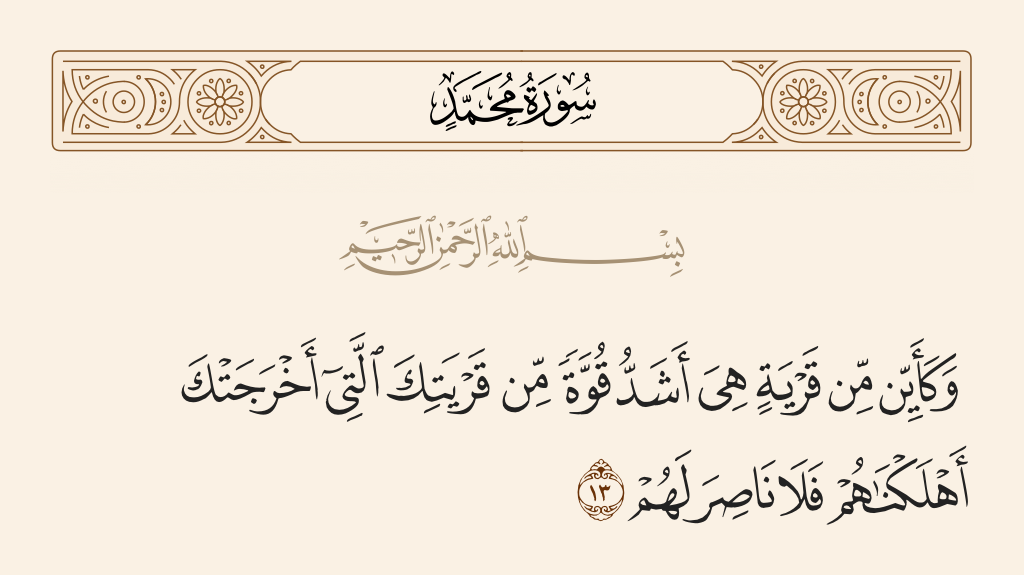 سُورَةُ مُحَمَّدٍ
بِسْمِ ٱللَّهِ ٱلرَّحْمَٰنِ ٱلرَّحِيمِ
وَكَأَيِّن مِّن قَرْيَةٍ هِىَ أَشَدُّ قُوَّةً مِّن قَرْيَتِكَ ٱلَّتِىٓ أَخْرَجَتْكَ
أَهْلَكْنَٰهُمْ فَلَا نَاصِرَ لَهُمْ ١٣